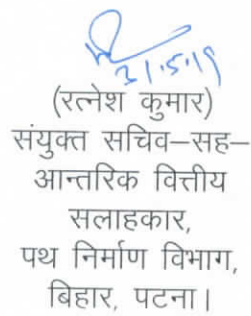 31.5.19
(रत्नेश कुमार)
संयुक्त सचिव–सह–
आन्तरिक वित्तीय
सलाहकार,
पथ निर्माण विभाग,
बिहार, पटना।